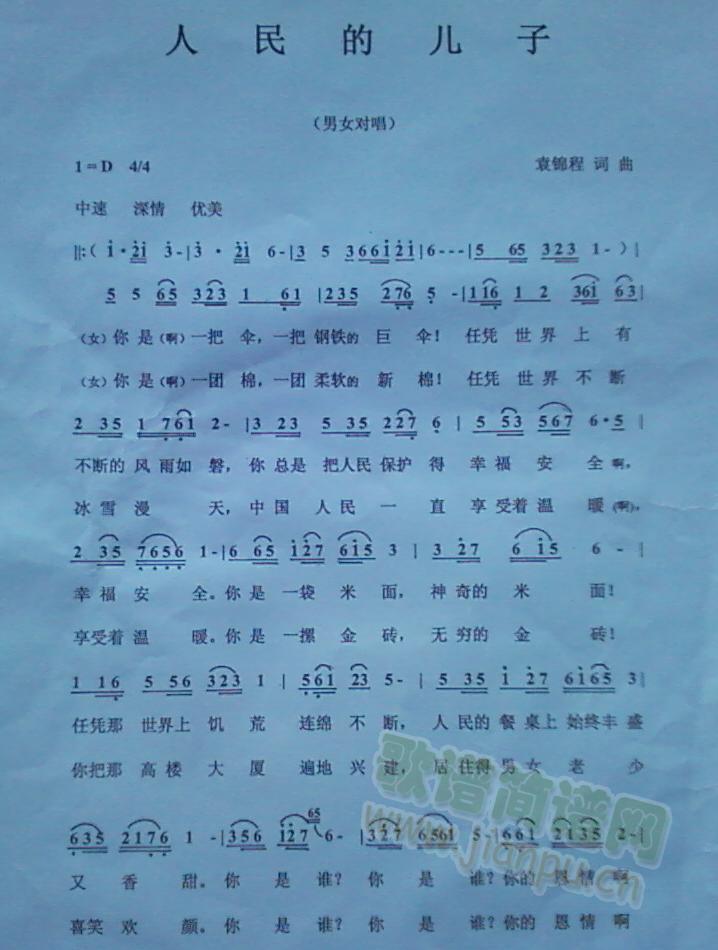 人民的儿子
（男女对唱）
1=D 4/4 袁锦程 词 曲
中速 深情 优美
‖:( i·2i 3-|3·2i 6-|3 5 366i2i|6---|5 65 323 1-)|
5 5 65 323 1 61 |235 276 5-|116 1 2 361 63|
（女）你是（啊）一把 伞，一把 钢铁的 巨 伞！ 任凭 世 界 上 有
（女）你是（啊）一团 棉，一团 柔软的 新 棉！ 任凭 世 界 不 断
2 35 1 761 2-|3 23 5 35 227 6 | 5 53 567 6·5 |
不断的 风 雨如 磐，你 总是 把人民 保护 得 幸 福 安 全 啊，
冰 雪 漫 天，中 国 人 民 一 直 享 受着 温 暖（啊），
2 35 7656 1-|6 65 i27 6i5 3 | 3 27 6 i5 6 - |
幸 福 安 全。你 是 一袋 米 面， 神 奇的 米 面！
享受着 温 暖。你 是 一摞 金 砖， 无 穷的 金 砖！
1 16 5 56 323 1 | 561 23 5- | 5 35 i 27 6i65 3|
任凭那 世界上 饥 荒 连绵 不 断， 人 民的 餐 桌上 始终丰 盛
你把那 高楼 大 厦 遍地 兴 建， 居 住得 男 女 老 少
635 2176 1 -|356 i27 65 6-|327 6561 5-|661 2135 2-|
又 香 甜。你 是 谁？你 是 谁？你的 恩 情 啊
喜笑 欢 颜。你 是 谁？你 是 谁？你的 恩 情 啊
歌谱简谱网
www.jianpu.cn